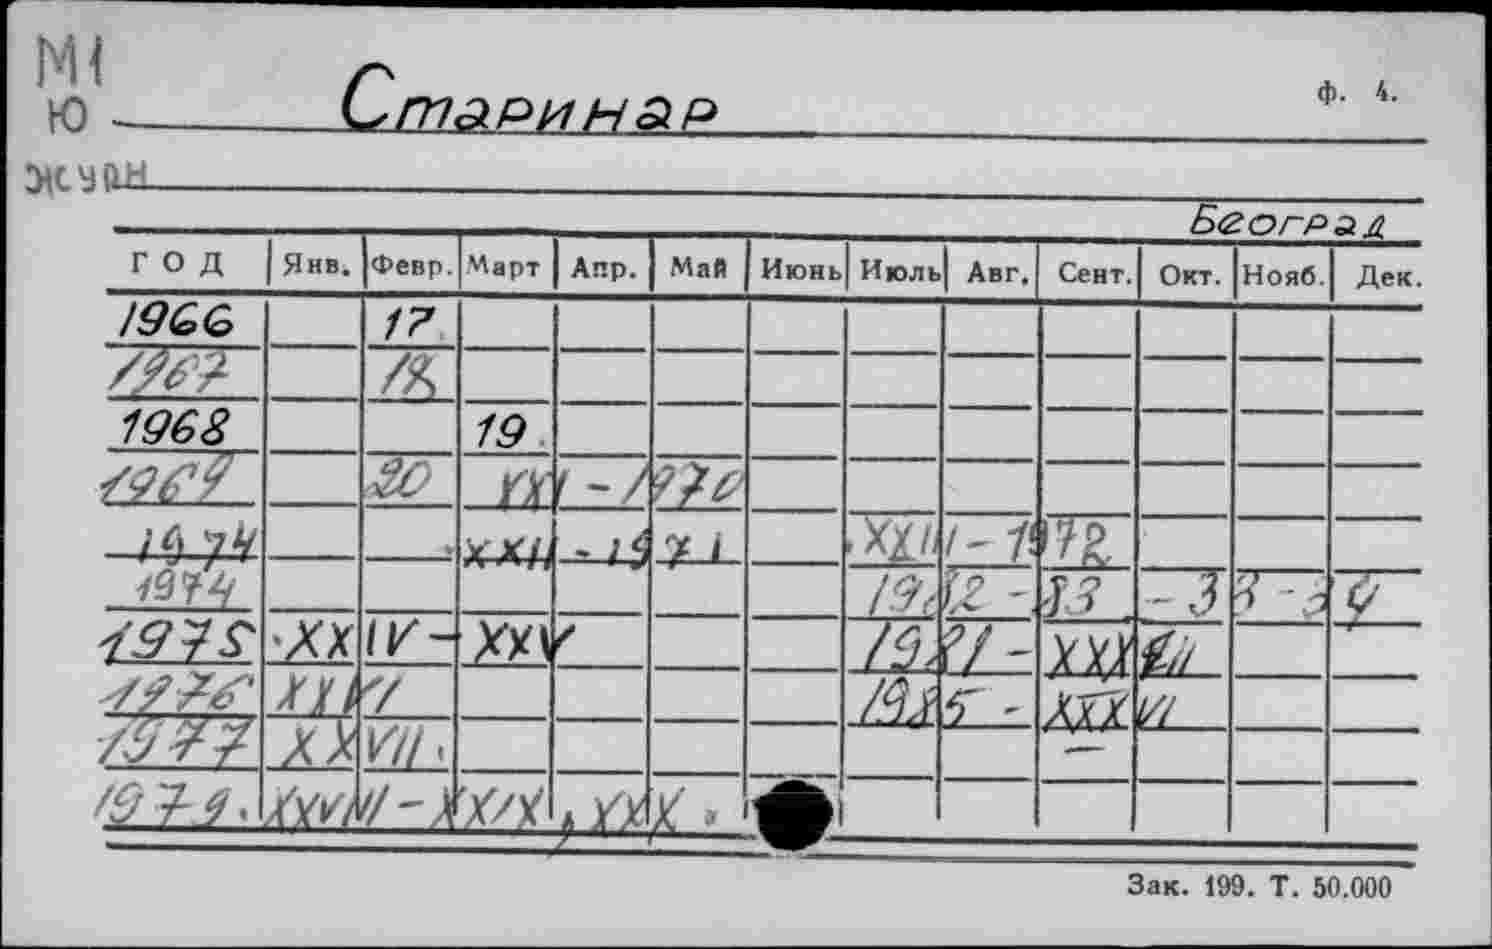 М1
Ю Старинар ф. 4.
журн
Београд
ГОД Янв. Февр. Март Апр. Май Июнь Июль Авг. Сент. Окт. Нояб. Дек.
1966 17
1967 18
1968 19
1969 20 XXI - 1970
1974 XXII - 1971 XXIII - 1972
1974 1982 - 33 - 3 4
1975 XXIV - XXV 1981 - XXXII
1976 XXVI 1985 - XXXVI
1977 XXVII. —
1979. XXVIII - XXIX, XXX.
Зак. 199. Т. 50.000